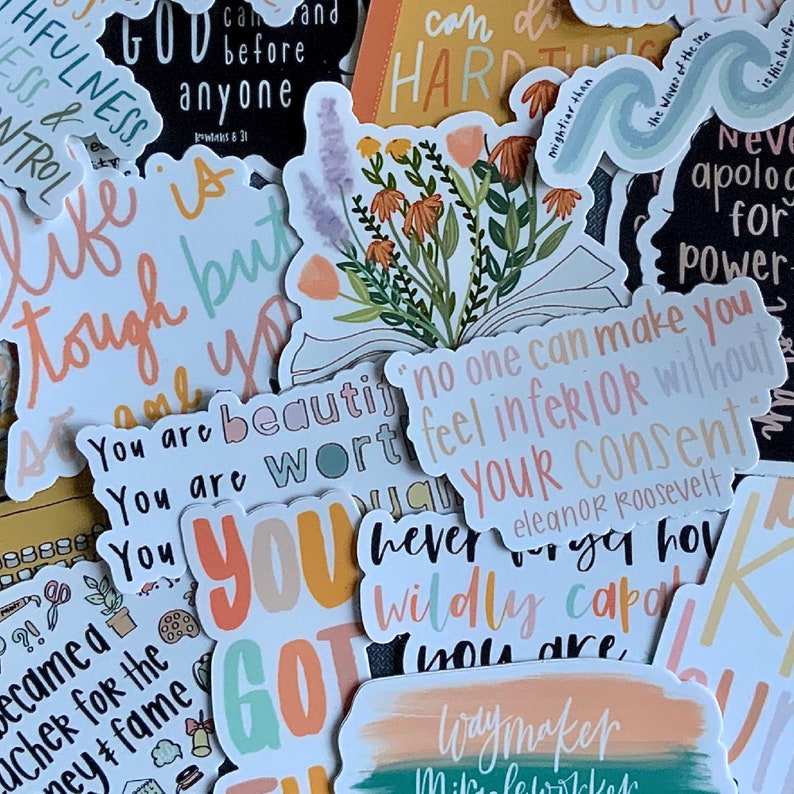 GOD
can stand
before
anyone
Romans 8:31
can do
HARD THINGS
mightier than
the waves of the sea
is His love for
Never
apolog
for
power-
life is
tough but
you
"no one can make you
feel inferior without
your consent"
eleanor roosevelt
You are beautif
You are worth
You
YOU
GOT
never forget how
wildly capa
(you are
became a
acher for the
ney & fame
PAINT
way maker
Miracle worker
FULNESS,
NESS, &
CONTROL